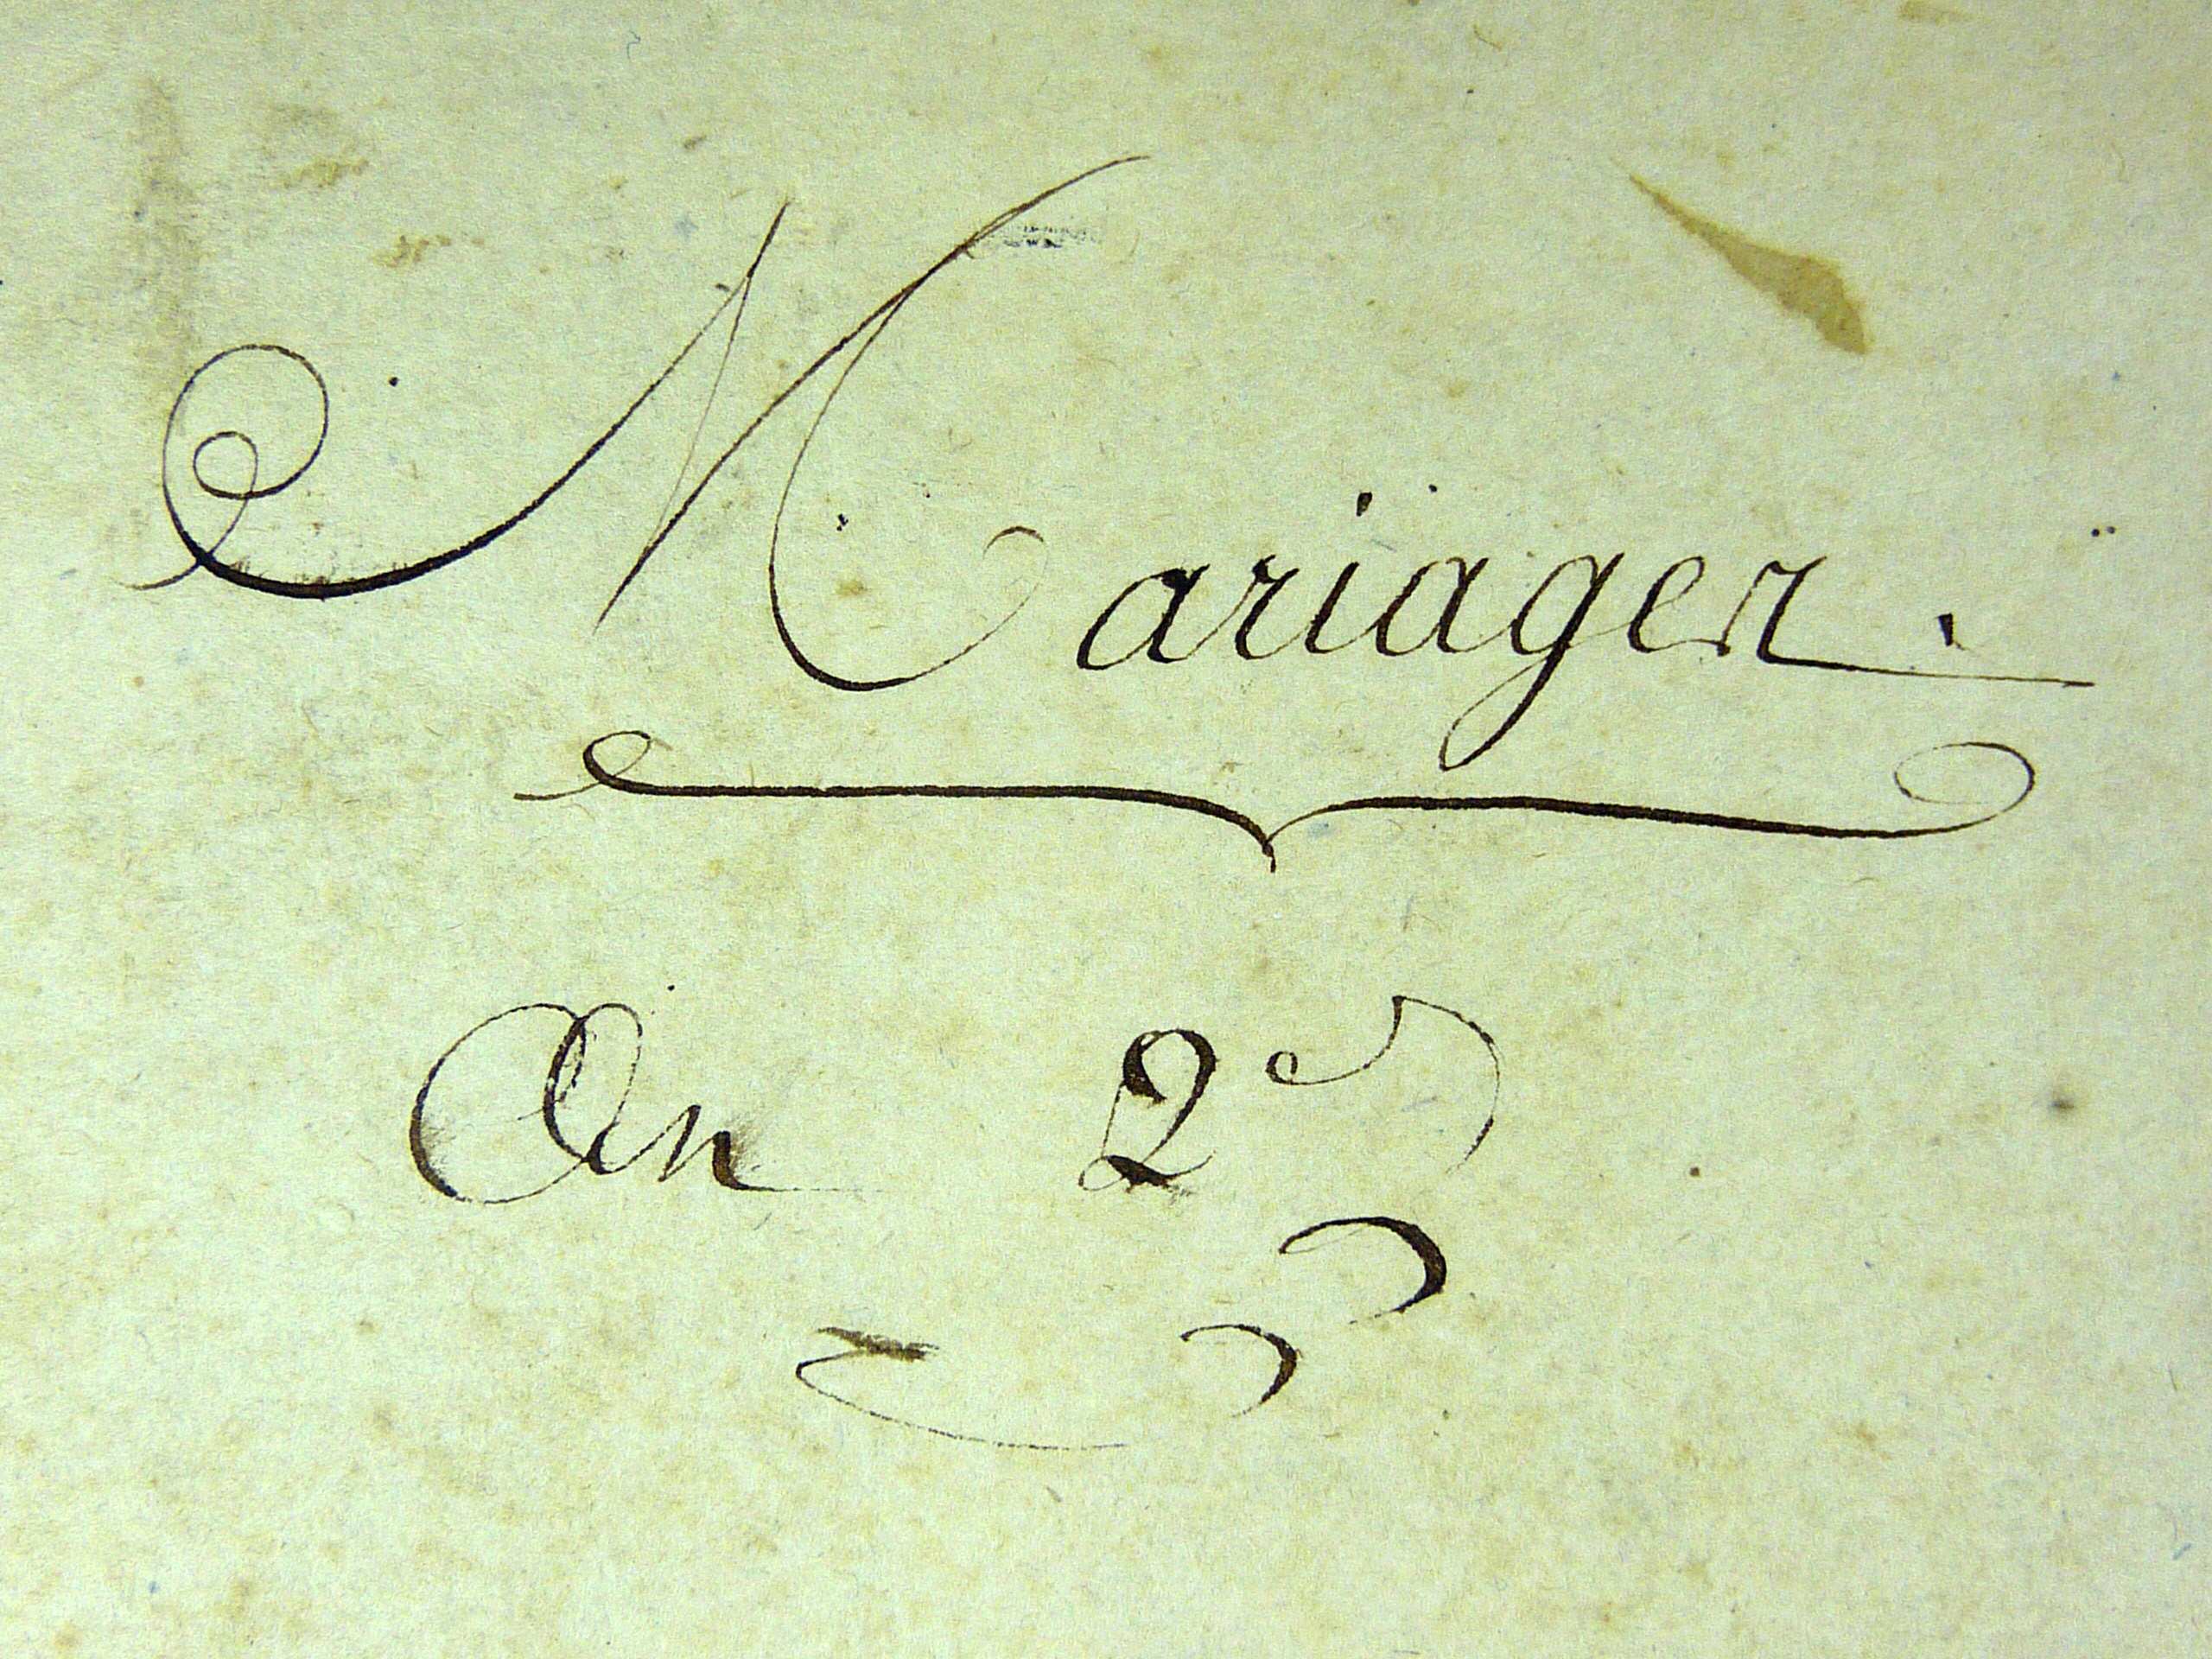 Mariages.
An 2e